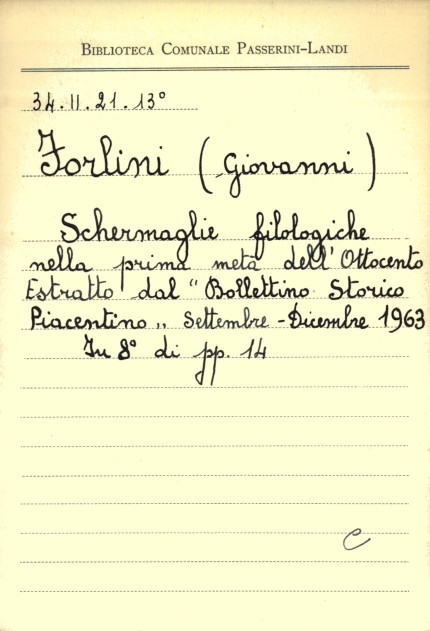 BIBLIOTECA COMUNALE PASSERINI-LANDI
34.II.21.13°
Forlini (Giovanni)
Schermaglie filologiche
nella prima metà dell'Ottocento
Estratto dal "Bollettino Storico
Piacentino„ Settembre-Dicembre 1963
In 8° di pp. 14
C